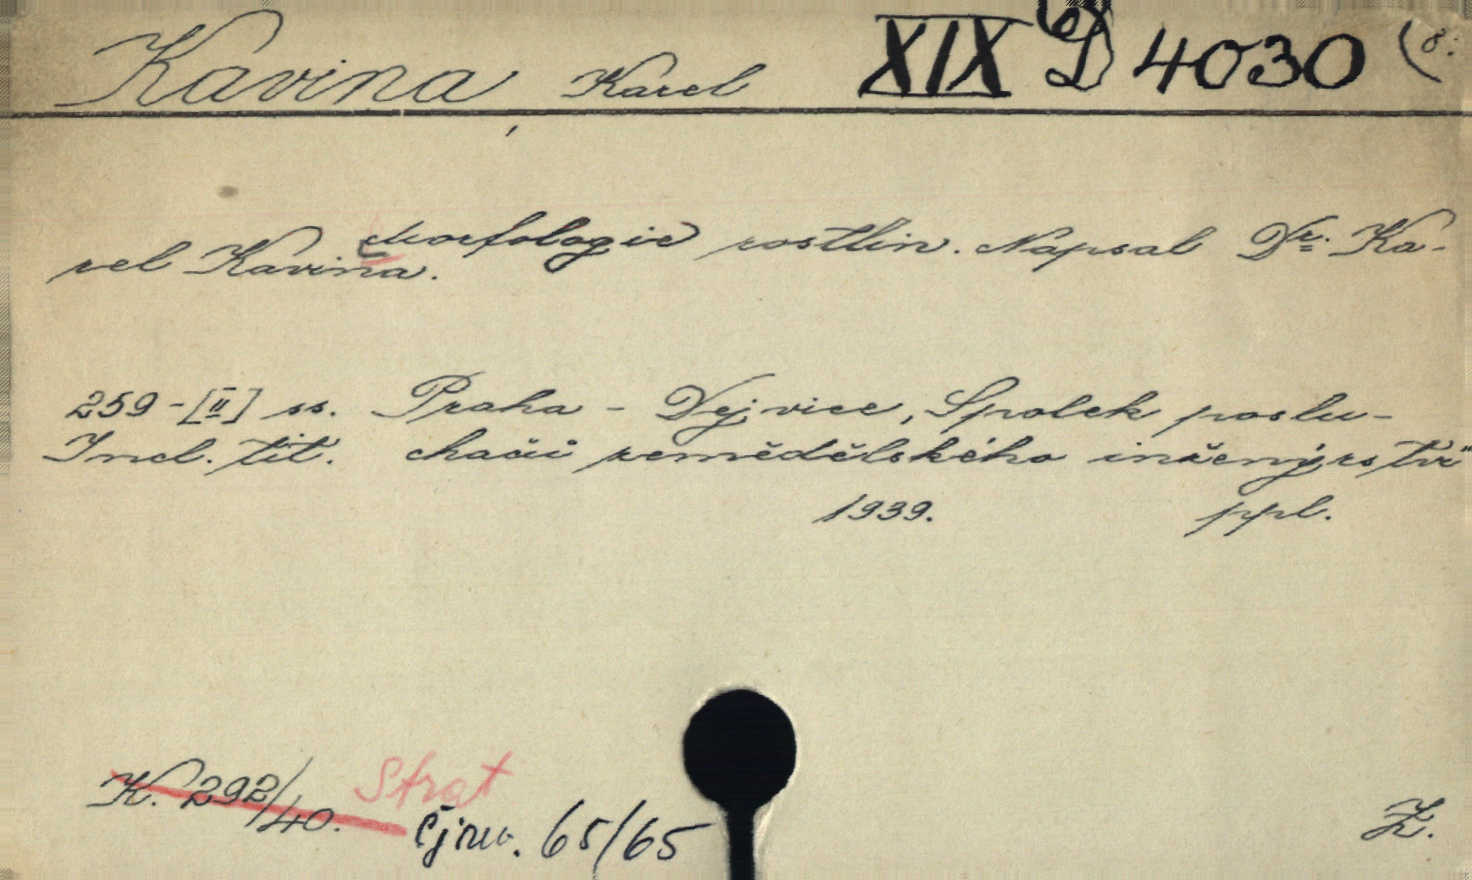 Kavina Karel XIX D 4030 (8:
Morfologie rostlin. Napsal Dr. Ka-
rel Kavina.
259-[II] ss. Praha - Dejvice, Spolek poslu-
Incl. tit. chačů zemědělského inženýrství
1939. ppl.
K. 292/40. Strat
čj. 65/65
Z.